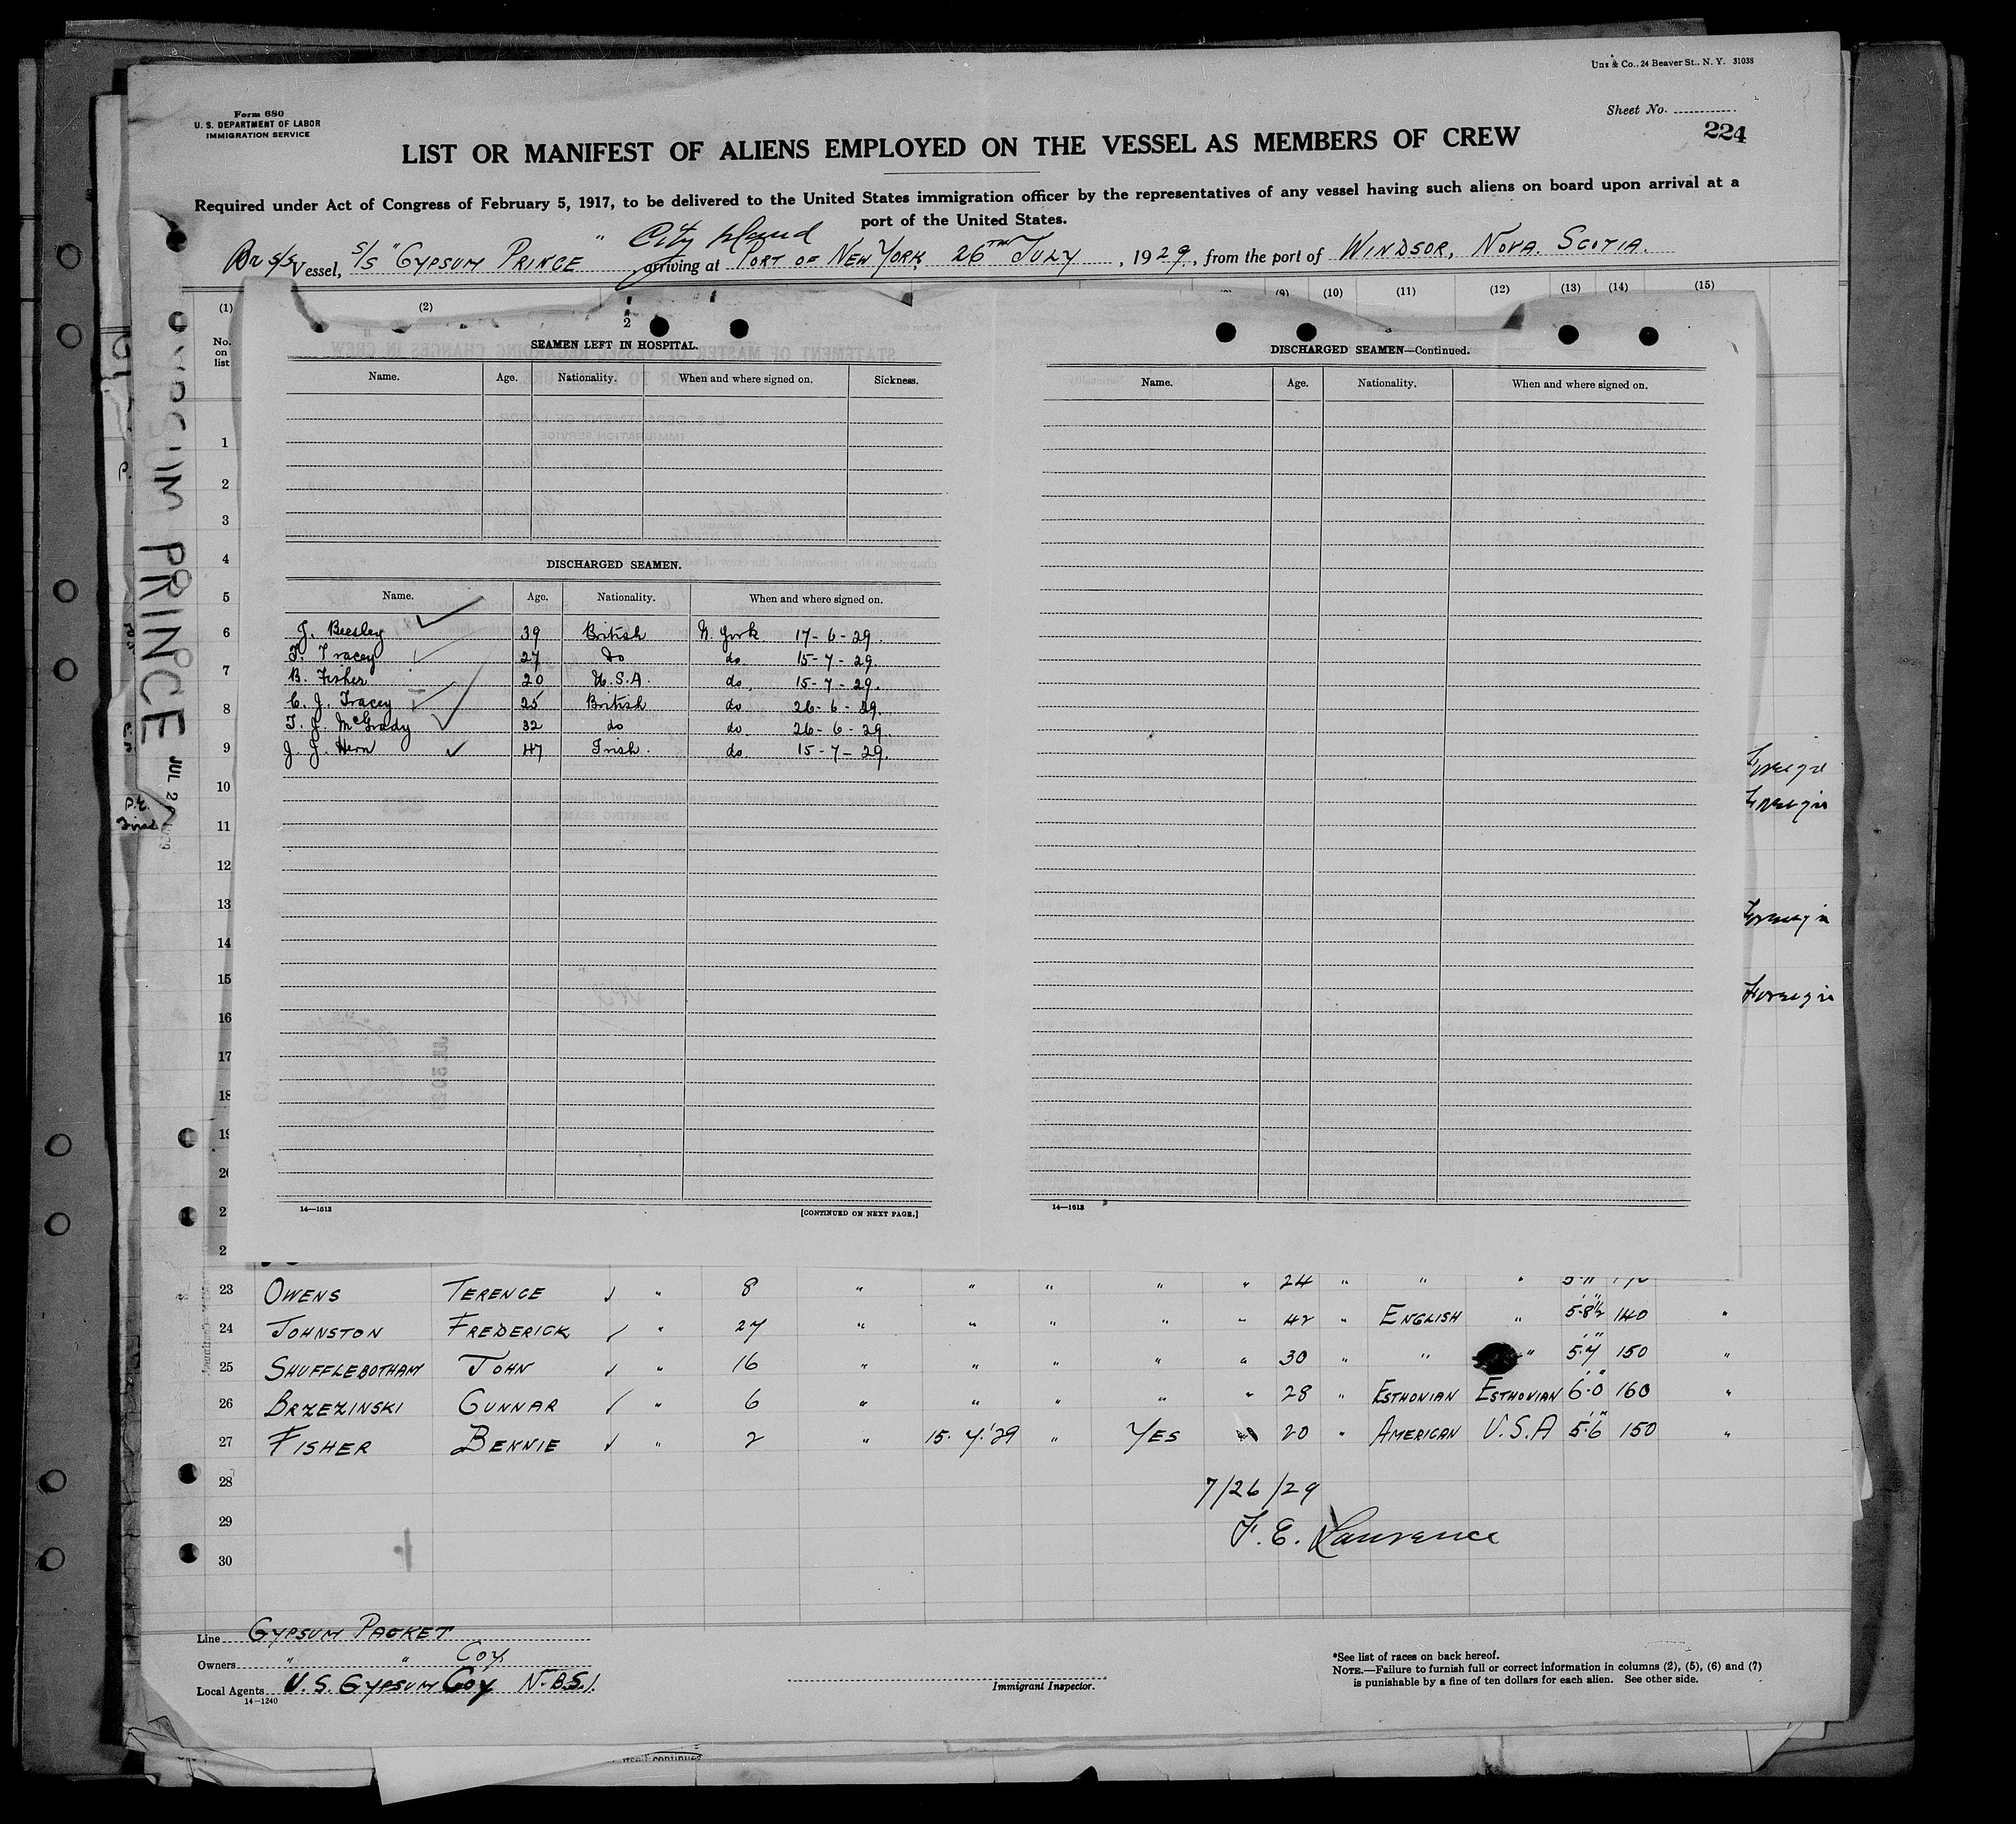 Uns & Co., 24 Beaver St., N. Y. 31038
Form 680
U. S. DEPARTMENT OF LABOR
IMMIGRATION SERVICE
Sheet No.
224
LIST OR MANIFEST OF ALIENS EMPLOYED ON THE VESSEL AS MEMBERS OF CREW
Required under Act of Congress of February 5, 1917, to be delivered to the United States immigration officer by the representatives of any vessel having such aliens on board upon arrival at a
port of the United States.
City Island
Br s/s Vessel, S/S "GYPSUM PRINCE" arriving at PORT OF NEW YORK, 26TH JULY, 1929, from the port of WINDSOR, NOVA SCOTIA.
(1) (2) (9) (10) (11) (12) (13) (14) (15)
No. on list
2
SEAMEN LEFT IN HOSPITAL.
Name. Age. Nationality. When and where signed on. Sickness.
DISCHARGED SEAMEN.
Name. Age. Nationality. When and where signed on.
J. Beesley 39 British N. York 17-6-29.
T. Tracey 27 do do. 15-7-29
B. Fisher 20 U.S.A. do. 15-7-29.
C. J. Tracey 25 British do 26-6-29.
T. J. McGrady 32 do do. 26-6-29.
J. J. Hern 47 Irish. do. 15-7-29.
14—1613 [CONTINUED ON NEXT PAGE.]
DISCHARGED SEAMEN—Continued.
Name. Age. Nationality. When and where signed on.
14—1613
1
2
3
4
5
6
7
8
9
10
11
12
13
14
15
16
17
18
GYPSUM PRINCE JUL 2
Foreign
Foreign
Foreign
Foreign
23 OWENS TERENCE ✓ " 8 " " " " " 24 " " " 5·11
24 JOHNSTON FREDERICK ✓ " 27 " " " " " 42 " ENGLISH " 5-8½ 140 "
25 SHUFFLEBOTHAM JOHN ✓ " 16 " " " " " 30 " " " 5·7 150 "
26 BRZEZINSKI GUNNAR ✓ " 6 " " " " " 28 " ESTHONIAN ESTHONIAN 6·0 160 "
27 FISHER BENNIE ✓ " 2 " 15·7·'29 " YES 20 " AMERICAN U.S.A 5·6 150 "
28
29
30
7/26/29
F. E. Lawrence
Line GYPSUM PACKET
Owners " " COY.
Local Agents U.S. GYPSUM COY N.B.S.I.
14—1240
Immigrant Inspector.
*See list of races on back hereof.
NOTE.—Failure to furnish full or correct information in columns (2), (5), (6) and (7)
is punishable by a fine of ten dollars for each alien. See other side.